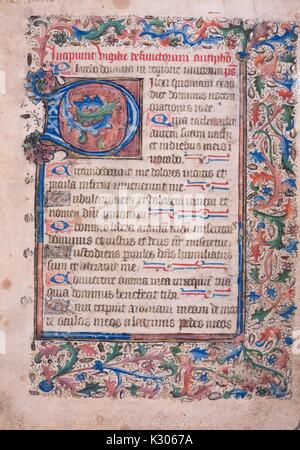 Incipiunt vigilie defunctorum antipho
Placebo domino in regione vivorum ps
Dilexi quoniam exau
diet dominus vocem
orationis mee
Quia inclinavit
aurem suam michi
et in diebus meis i
vocabo
Circundederunt me dolores mortis et
pericula inferni invenerunt me
Tribulationem et dolorem inveni et
nomen dni invocavi
O domine libera animam meam misericors
dominus et iustus et deus nr miseretur
Custodiens parvulos dns humiliatus
sum et liberavit me
Convertere anima mea in requiem tuam
quia dominus benefecit tibi
Quia eripuit animam meam de mor
te oculos meos a lacrimis pedes meos
K3067A